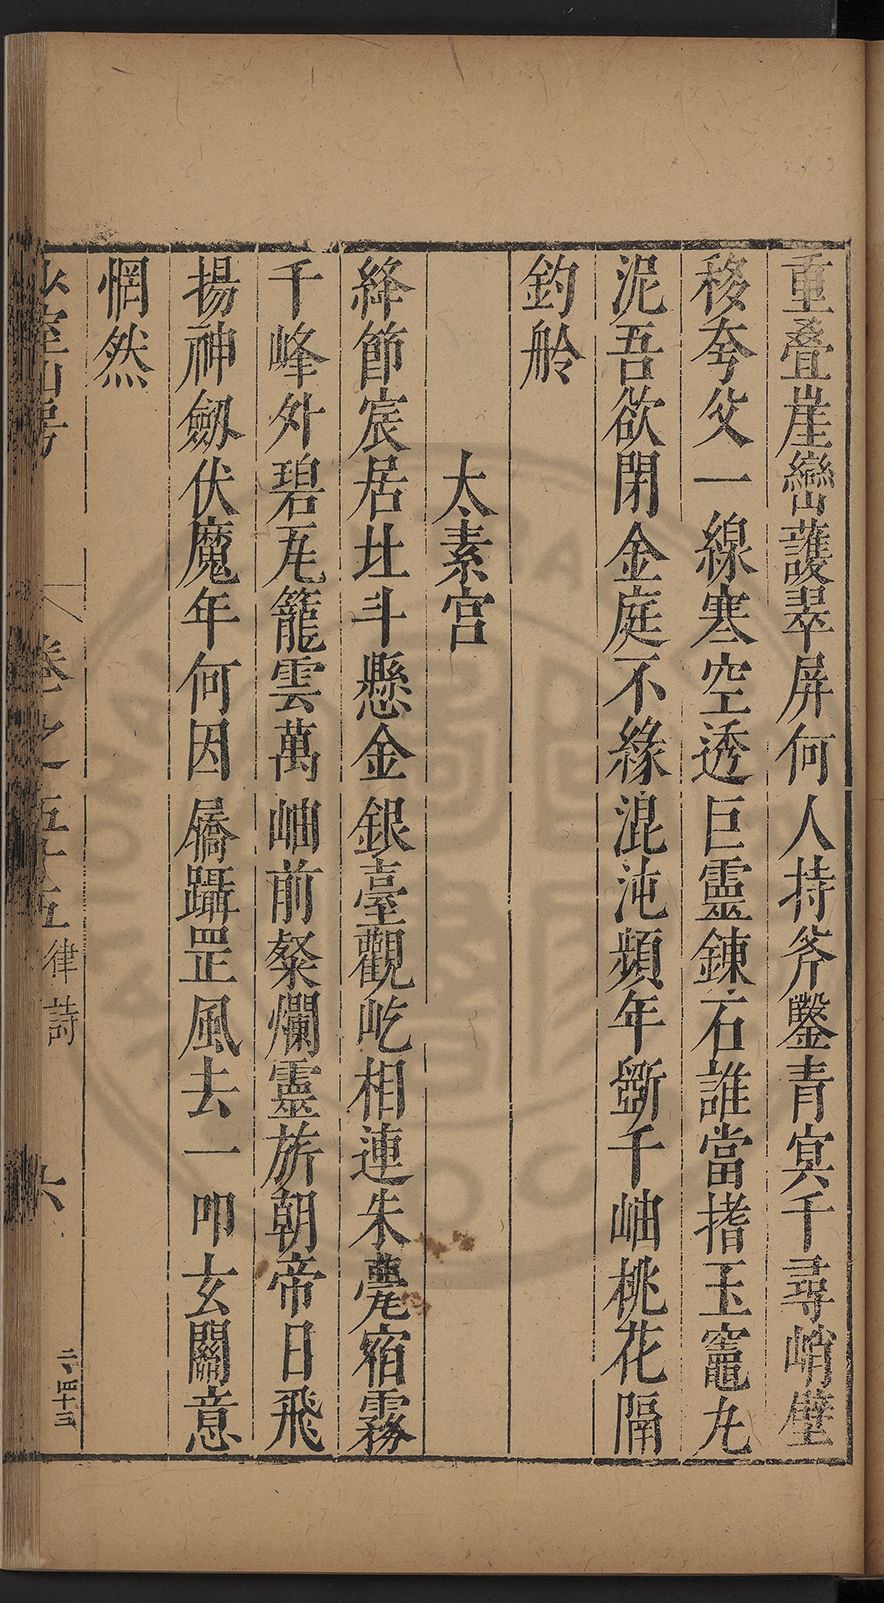 重叠崖巒護翠屏何人持斧鑿青冥千尋峭壁
移夸父一線寒空透巨靈鍊石誰當揩玉竈九
泥吾欲閉金庭不緣混沌頻年斵千岫桃花隔
釣舲
太素宮
絳節宸居北斗懸金銀臺觀屹相連朱甍宿霧
千峰外碧瓦籠雲萬岫前粲爛靈旂朝帝日飛
揚神劔伏魔年何因屩躡罡風去一叩玄關意
惘然
少室山房
卷之五十五 律詩
六
二、四十三